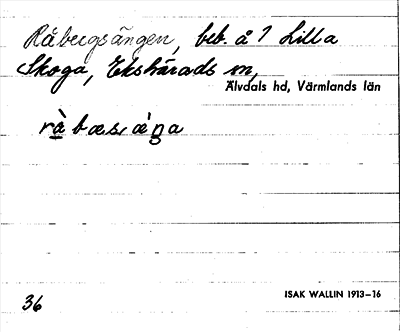 Råbergsängen, beb. å 1 Lilla
Skoga, Ekshärads sn,
Älvdals hd, Värmlands län
ISAK WALLIN 1913–16
36